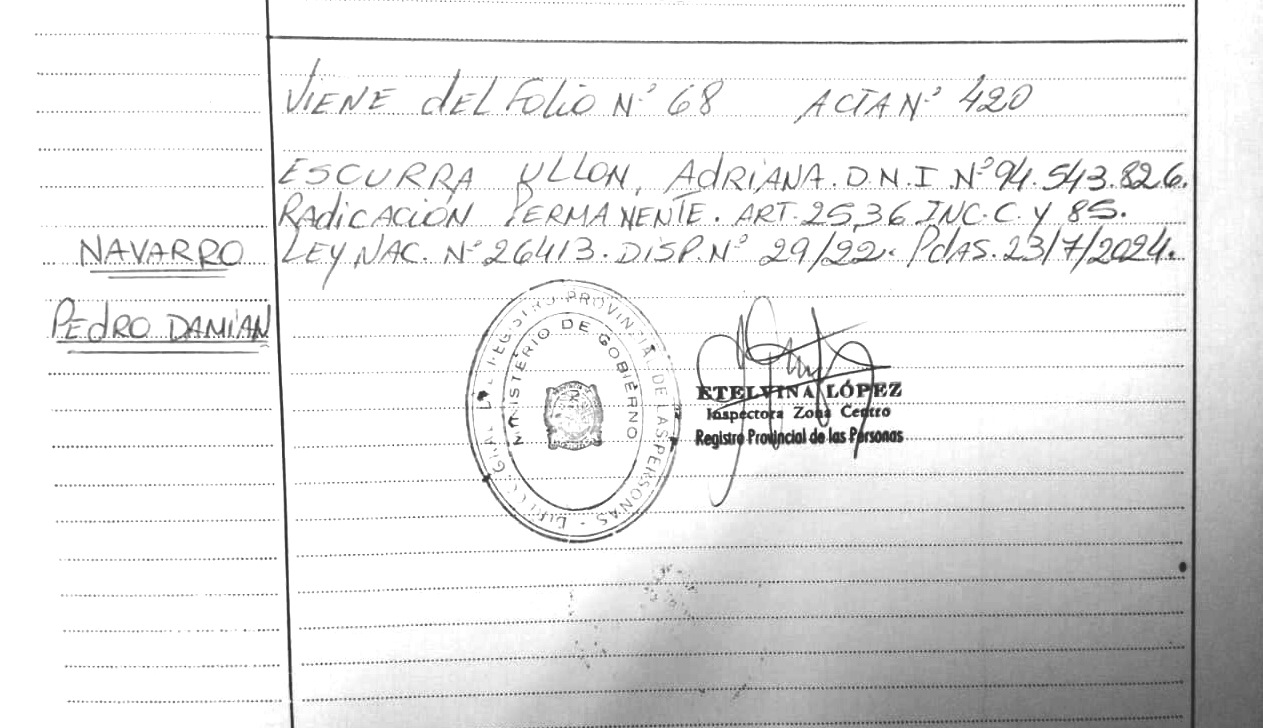 VIENE dEL FoLio N.º 68 ACTA N.º 420
ESCURRA ULLON, AdRIANA. D.N.I N.º 94.543.826.
RAdicACIÓN PERMANENTE. ART. 25,36 INC. C. y 85.
NAVARRO
LEY NAC. N.º 26413. DISP. N.º 29/22. PdAS. 23/7/2024.
PEdRO DAMIAN
REGISTRO PROVINCIAL DE LAS PERSONAS -
MINISTERIO DE GOBIERNO
ETELVINA LÓPEZ
Inspectora Zona Centro
Registro Provincial de las Personas